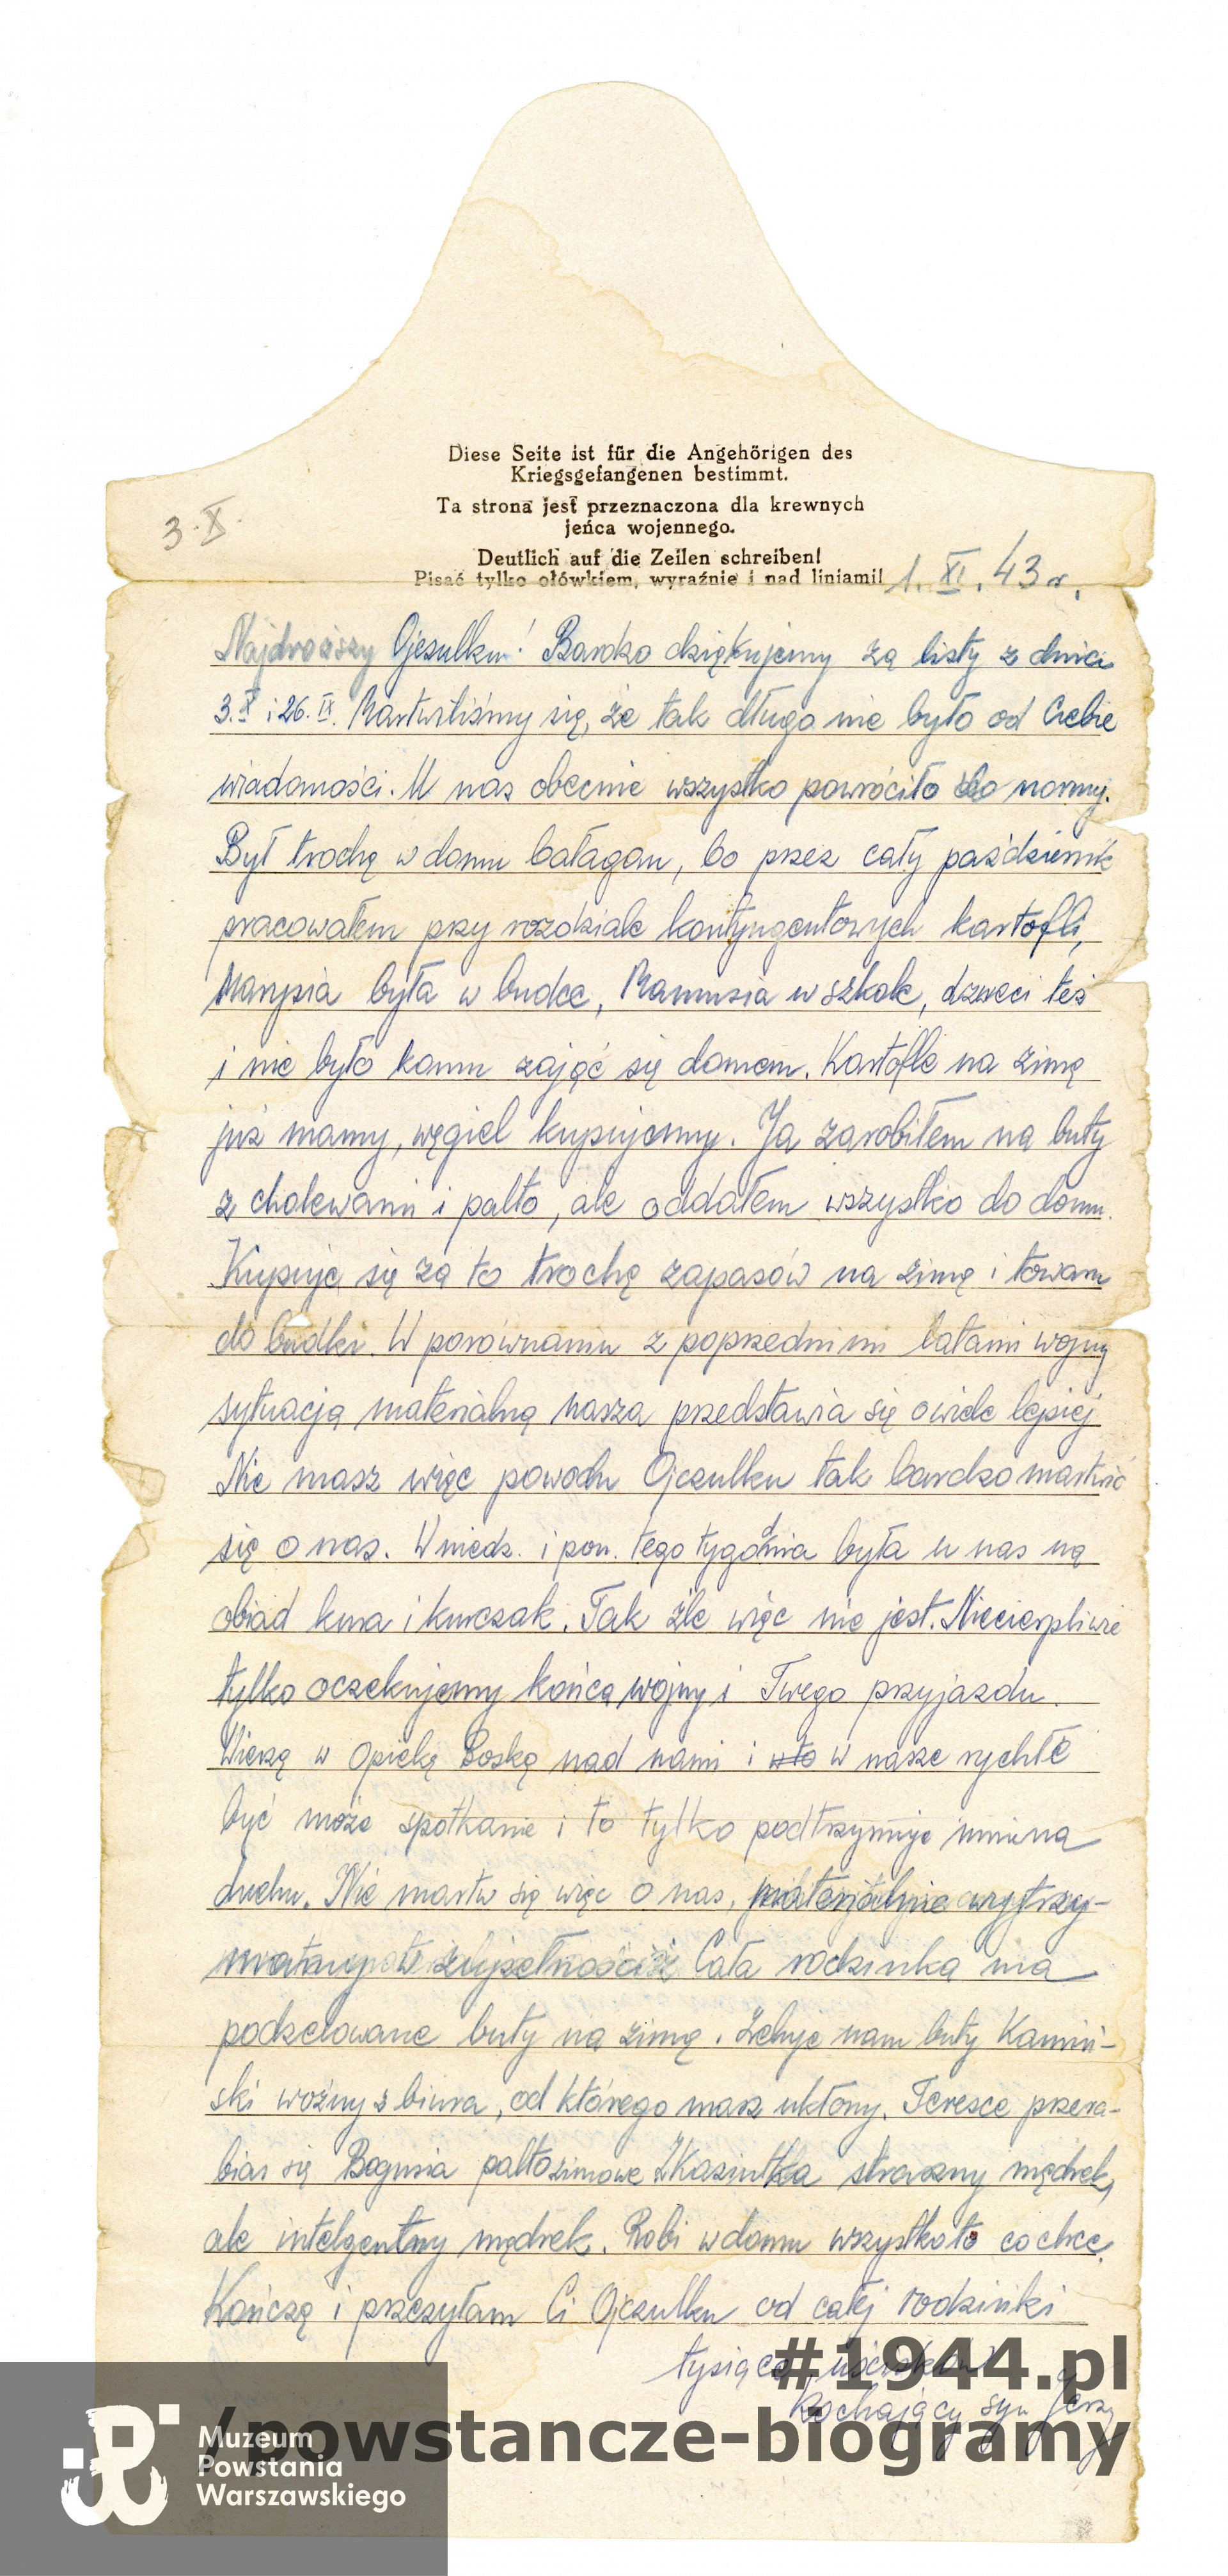 Diese Seite ist für die Angehörigen des
Kriegsgefangenen bestimmt.
Ta strona jest przeznaczona dla krewnych
jeńca wojennego.
Deutlich auf die Zeilen schreiben!
Pisać tylko ołówkiem, wyraźnie i nad liniami!
3.X.
1.XI.43 r.
Najdroższy Ojczulku! Bardzo dziękujemy za listy z dnia
3.X i 26.IX. Martwiliśmy się, że tak długo nie było od Ciebie
wiadomości. U nas obecnie wszystko powróciło do normy.
Był trochę w domu bałagan, bo przez cały październik
pracowałem przy rozdziale kontyngentowych kartofli,
Marysia była w budce, Mamusia w szkole, dzieci też
i nie było komu zająć się domem. Kartofle na zimę
już mamy, węgiel kupujemy. Ja zarobiłem na buty
z cholewami i palto, ale oddałem wszystko do domu.
Kupuje się za to trochę zapasów na zimę i towaru
do budki. W porównaniu z poprzednimi latami wojny
sytuacja materialna nasza przedstawia się o wiele lepiej
Nie masz więc powodu Ojczulku tak bardzo martwić
się o nas. W niedz. i pon. tego tygodnia była u nas na
obiad kura i kurczak. Tak źle więc nie jest. Niecierpliwie
tylko oczekujemy końca wojny i Twego przyjazdu.
Wierzę w Opiekę Boską nad nami i w nasze rychłe
być może spotkanie i to tylko podtrzymuje mnie na
duchu. Nie martw się więc o nas, materjalnie wytrzy-
Cała rodzinka ma
podzelowane buty na zimę. Zeluje nam buty Kamiń-
ski woźny z biura, od którego masz ukłony. Teresce przera-
bia się Bogusia palto zimowe Z Kaziutka straszny mędrek,
ale inteligentny mędrek. Robi w domu wszystko to co chce.
Kończę i przesyłam Ci Ojczulku od całej rodzinki
tysiące uścisków
Kochający syn Jerzy
#1944.pl
/powstancze-biogramy
Muzeum
Powstania
Warszawskiego